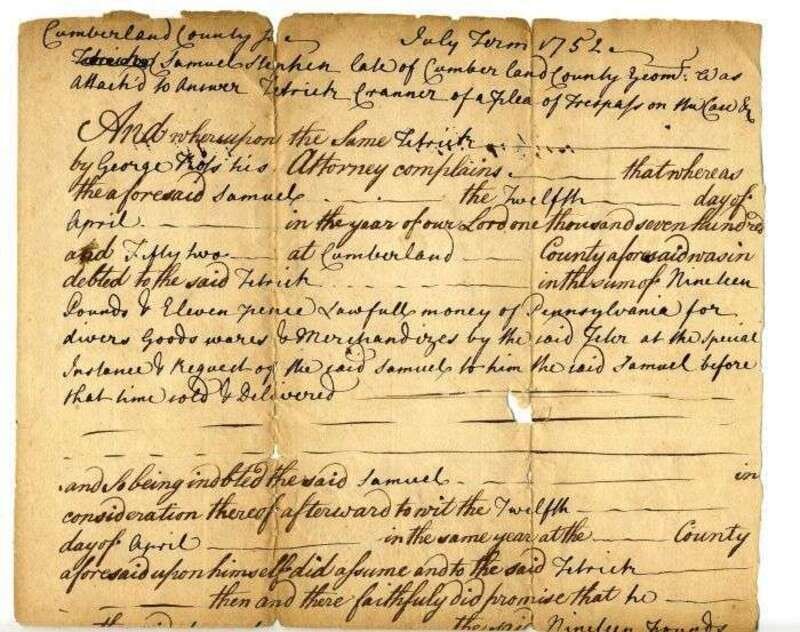 Cumberland County ss July Term 1752
Samuel Stephen late of Cumberland County Yeom.n was
Attach'd to Answer Tetrick Cranner of a Plea of Trespass on the Case &c
And whereupon the Same Tetrick
by George Ross his Attorney complains that whereas
the aforesaid Samuel the Twelfth day of
April in the year of our Lord one thousand seven hundred
and Fifty two at Cumberland County aforesaid was in
debted to the said Tetrick in the sum of Nineteen
Pounds & Eleven pence Lawfull money of Pennsylvania for
divers Goods wares & Merchandizes by the said at the Special
Instance & Request of the said Samuel to him the said Samuel before
that time sold & Delivered
and so being indebted the said Samuel in
consideration thereof afterward to wit the Twelfth
day of April in the same year at the County
aforesaid upon himself did assume and to the said Tetrick
then and there faithfuly did promise that he
the said Nineteen Pounds